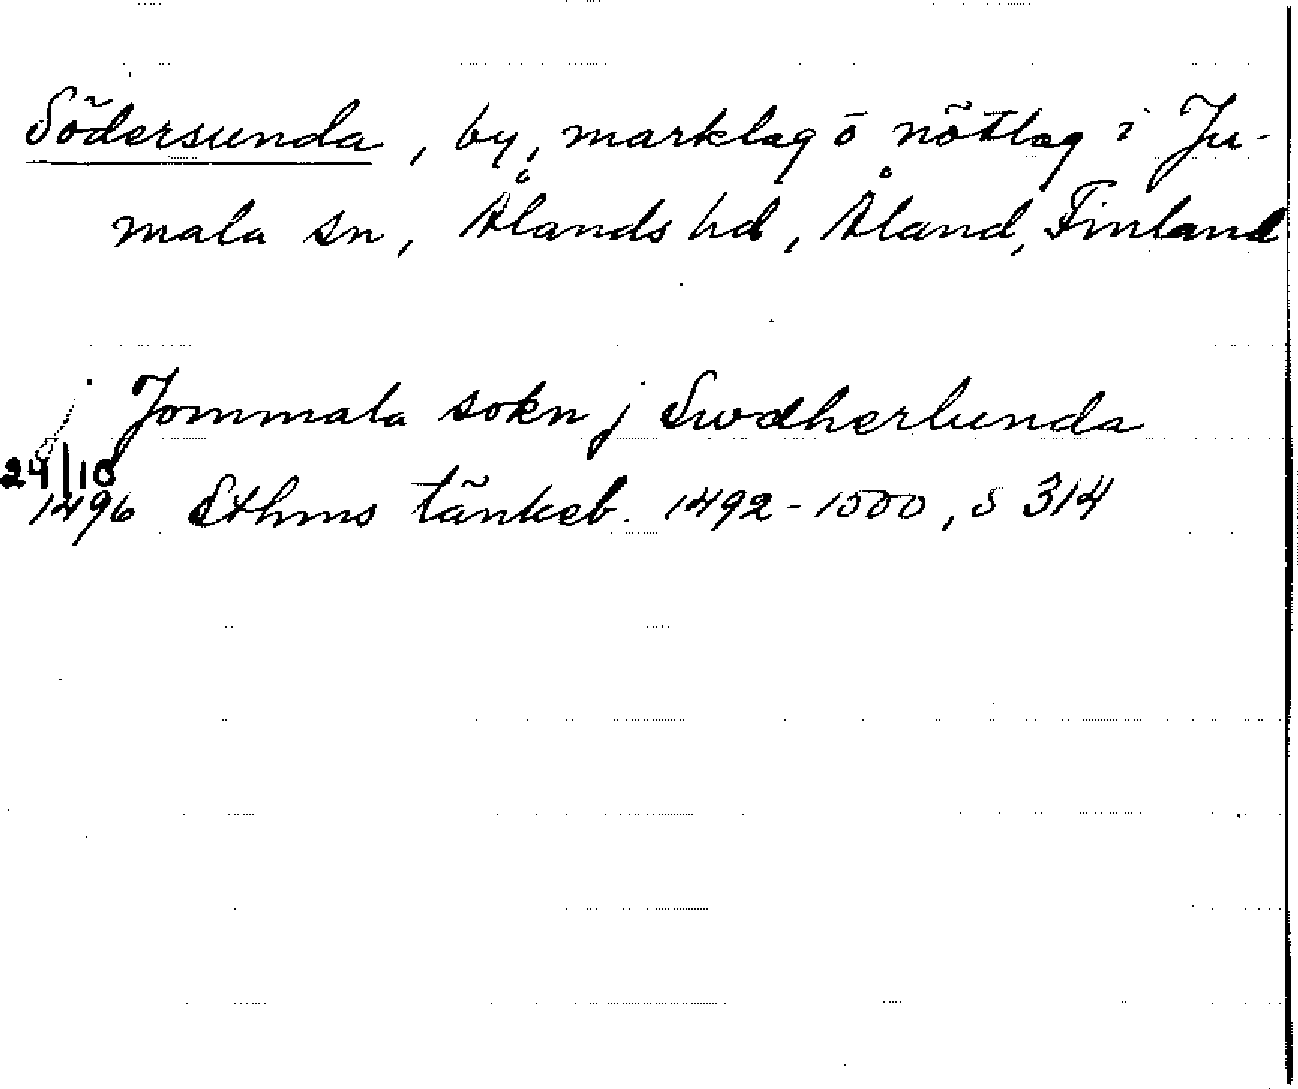 Södersunda, by, marklag o nötlag i Ju-
mala sn, Ålands hd, Åland, Finland
j Jommala sokn j Swdherlunda
24/10
1496 Sthms tänkeb. 1492-1500, s 314